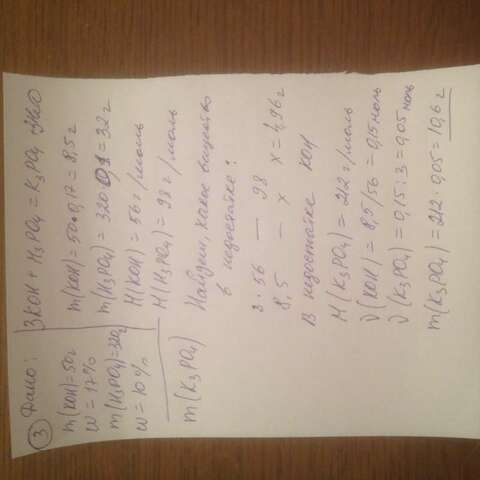 ③ Дано:
m(KOH)=50г
w=17%
m(H3PO4)=320г
w=10%
m(K3PO4)
3KOH+H3PO4=K3PO4+3H2O
m(KOH)=50·0,17=8,5г
m(H3PO4)=320·0,1=32г
M(KOH)=56г/моль
M(H3PO4)=98г/моль
Найдем, какое вещество
в недостатке?
3·56 — 98
8,5 — x x=4,96г
В недостатке KOH
M(K3PO4)=212г/моль
ν(KOH)=8,5/56=0,15моль
ν(K3PO4)=0,15:3=0,05моль
m(K3PO4)=212·0,05=10,6г